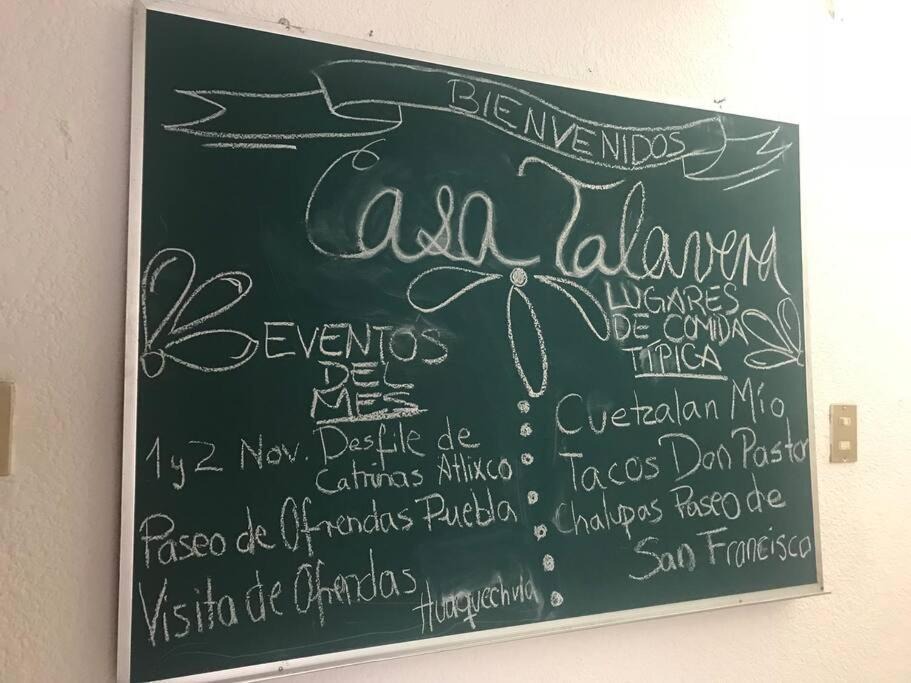 BIENVENIDOS
Casa Talavera
EVENTOS
DEL
MES
1 y 2 Nov. Desfile de
Catrinas Atlixco
Paseo de Ofrendas Puebla
Visita de Ofrendas
Huaquechula
LUGARES
DE COMIDA
TÍPICA
Cuetzalan Mío
Tacos Don Pastor
Chalupas Paseo de
San Francisco